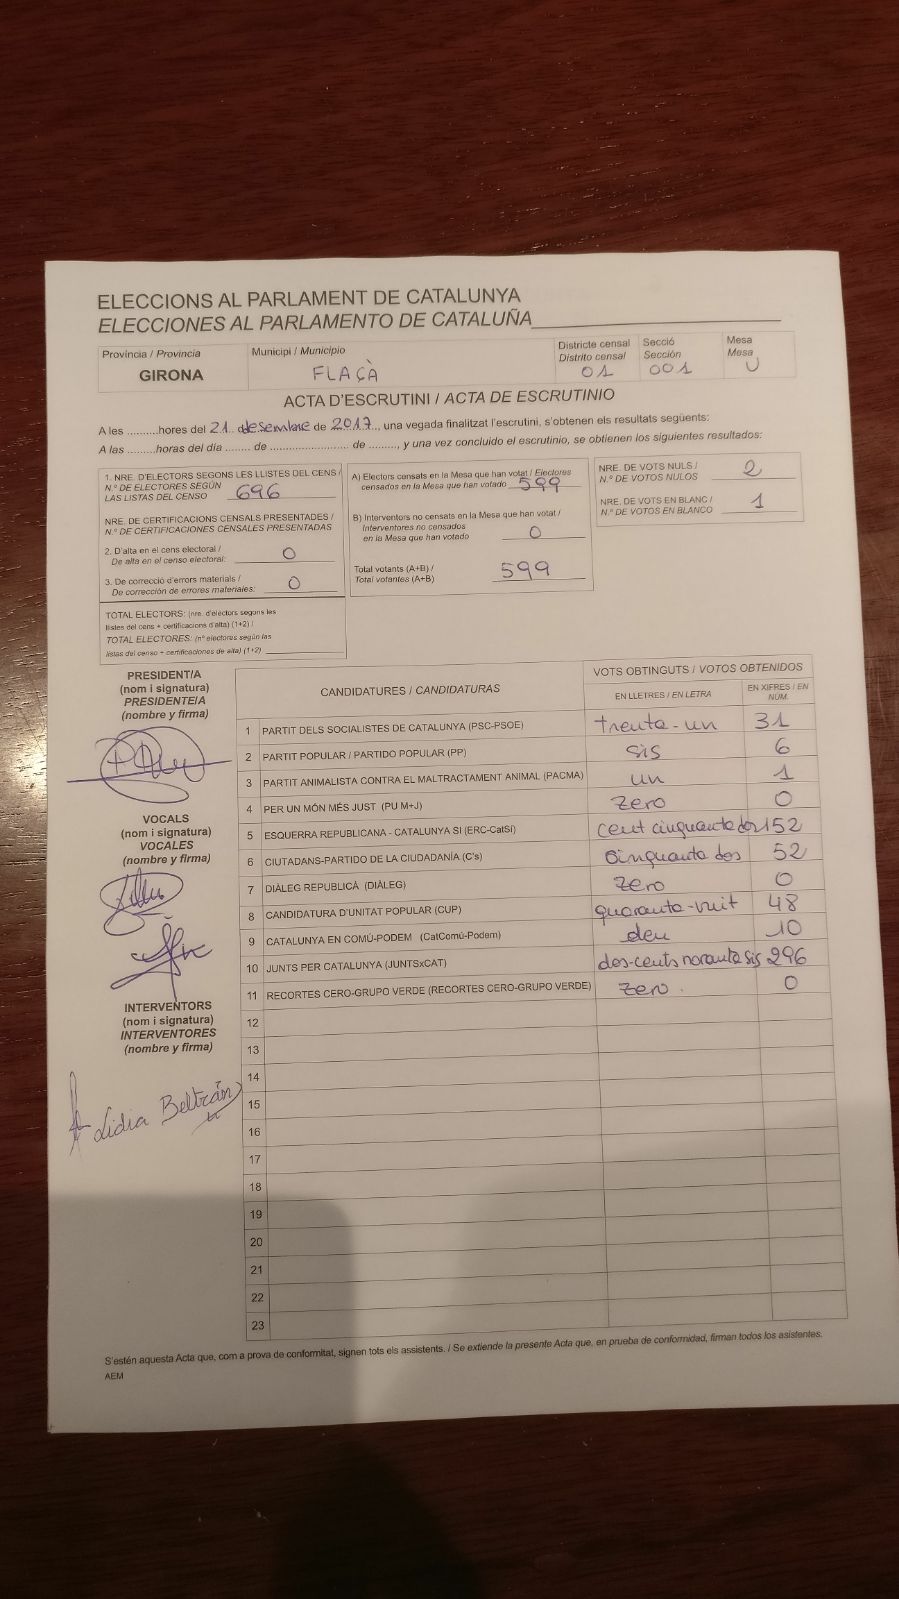 ELECCIONS AL PARLAMENT DE CATALUNYA
ELECCIONES AL PARLAMENTO DE CATALUÑA
Província / Provincia
GIRONA
Municipi / Municipio
FLAÇÀ
Districte censal
Distrito censal
01
Secció
Sección
001
Mesa
Mesa
U
ACTA D'ESCRUTINI / ACTA DE ESCRUTINIO
A les ..........hores del 21 desembre de 2017, una vegada finalitzat l'escrutini, s'obtenen els resultats següents:
A las .........horas del día ........ de .......................... de .........., y una vez concluido el escrutinio, se obtienen los siguientes resultados:
1. NRE. D'ELECTORS SEGONS LES LLISTES DEL CENS /
N.º DE ELECTORES SEGÚN
LAS LISTAS DEL CENSO 696
NRE. DE CERTIFICACIONS CENSALS PRESENTADES /
N.º DE CERTIFICACIONES CENSALES PRESENTADAS
2. D'alta en el cens electoral /
De alta en el censo electoral: 0
3. De correcció d'errors materials /
De corrección de errores materiales: 0
TOTAL ELECTORS: (nre. d'electors segons les
llistes del cens + certificacions d'alta) (1+2) /
TOTAL ELECTORES: (nº electores según las
listas del censo + certificaciones de alta) (1+2)
A) Electors censats en la Mesa que han votat / Electores
censados en la Mesa que han votado 599
B) Interventors no censats en la Mesa que han votat /
Interventores no censados
en la Mesa que han votado 0
Total votants (A+B) /
Total votantes (A+B) 599
NRE. DE VOTS NULS /
N.º DE VOTOS NULOS 2
NRE. DE VOTS EN BLANC /
N.º DE VOTOS EN BLANCO 1
PRESIDENT/A
(nom i signatura)
PRESIDENTE/A
(nombre y firma)
VOCALS
(nom i signatura)
VOCALES
(nombre y firma)
INTERVENTORS
(nom i signatura)
INTERVENTORES
(nombre y firma)
Lidia Beltrán
CANDIDATURES / CANDIDATURAS
VOTS OBTINGUTS / VOTOS OBTENIDOS
EN LLETRES / EN LETRA
EN XIFRES / EN
NÚM.
1 PARTIT DELS SOCIALISTES DE CATALUNYA (PSC-PSOE) trenta-un 31
2 PARTIT POPULAR / PARTIDO POPULAR (PP) sis 6
3 PARTIT ANIMALISTA CONTRA EL MALTRACTAMENT ANIMAL (PACMA) un 1
4 PER UN MÓN MÉS JUST (PU M+J) zero 0
5 ESQUERRA REPUBLICANA - CATALUNYA SI (ERC-CatSí) cent cinquanta dos 152
6 CIUTADANS-PARTIDO DE LA CIUDADANÍA (C's) cinquanta dos 52
7 DIÀLEG REPUBLICÀ (DIÀLEG) zero 0
8 CANDIDATURA D'UNITAT POPULAR (CUP) quaranta-vuit 48
9 CATALUNYA EN COMÚ-PODEM (CatComú-Podem) deu 10
10 JUNTS PER CATALUNYA (JUNTSxCAT) dos-cents noranta sis 296
11 RECORTES CERO-GRUPO VERDE (RECORTES CERO-GRUPO VERDE) zero. 0
12
13
14
15
16
17
18
19
20
21
22
23
S'estén aquesta Acta que, com a prova de conformitat, signen tots els assistents. / Se extiende la presente Acta que, en prueba de conformidad, firman todos los asistentes.
AEM